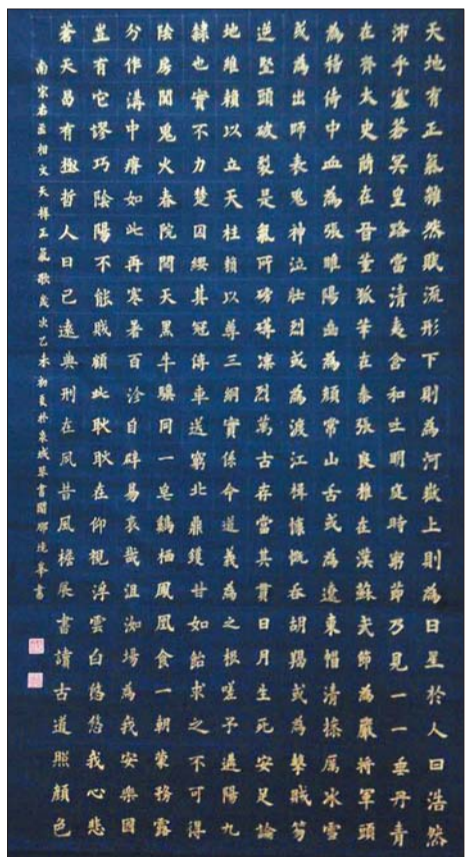 天地有正氣雜然賦流形下則為河嶽上則為日星於人曰浩然
沛乎塞蒼冥皇路當清夷含和吐明庭時窮節乃見一一垂丹青
在齊太史簡在晉董狐筆在秦張良椎在漢蘇武節為嚴將軍頭
為嵇侍中血為張睢陽齒為顏常山舌或為遼東帽清操厲冰雪
或為出師表鬼神泣壯烈或為渡江楫慷慨吞胡羯或為擊賊笏
逆豎頭破裂是氣所磅礴凜烈萬古存當其貫日月生死安足論
地維賴以立天柱賴以尊三綱實係命道義為之根嗟予遘陽九
隸也實不力楚囚纓其冠傳車送窮北鼎鑊甘如飴求之不可得
陰房闃鬼火春院閟天黑牛驥同一皂鷄栖鳳凰食一朝蒙務露
分作溝中瘠如此再寒暑百沴自辟易哀哉沮洳場為我安樂國
豈有它謬巧陰陽不能賊顧此耿耿在仰視浮雲白悠悠我心悲
蒼天曷有極哲人日已遠典刑在夙昔風檐展書讀古道照顏色
南宋右丞相文天祥正氣歌歲次乙未初夏於城琴書閣書